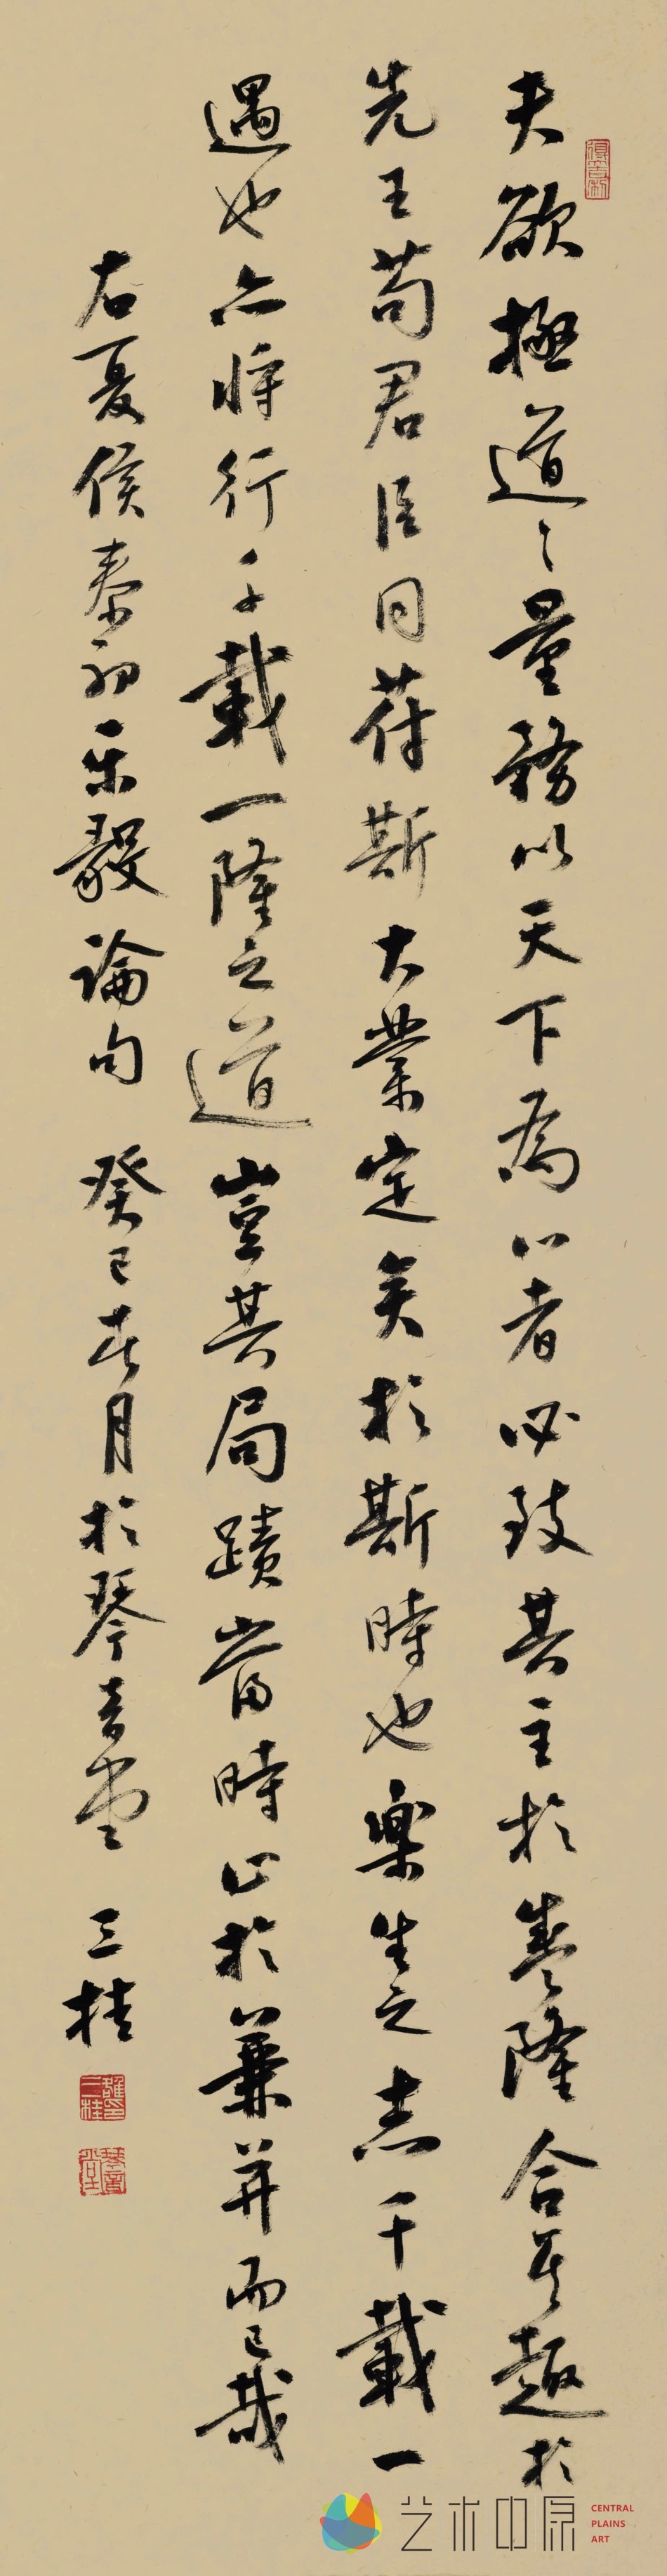 夫欲極道之量務以天下為心者必致其主於盛隆合其趣於
先王苟君臣同符斯大業定矣於斯時也樂生之志千載一
遇也亦將行千載一隆之道豈其局蹟當時止於兼并而已哉
右夏侯泰初乐毅論句 癸巳春月於琴音堂 三桂
艺术中原
CENTRAL
PLAINS
ART